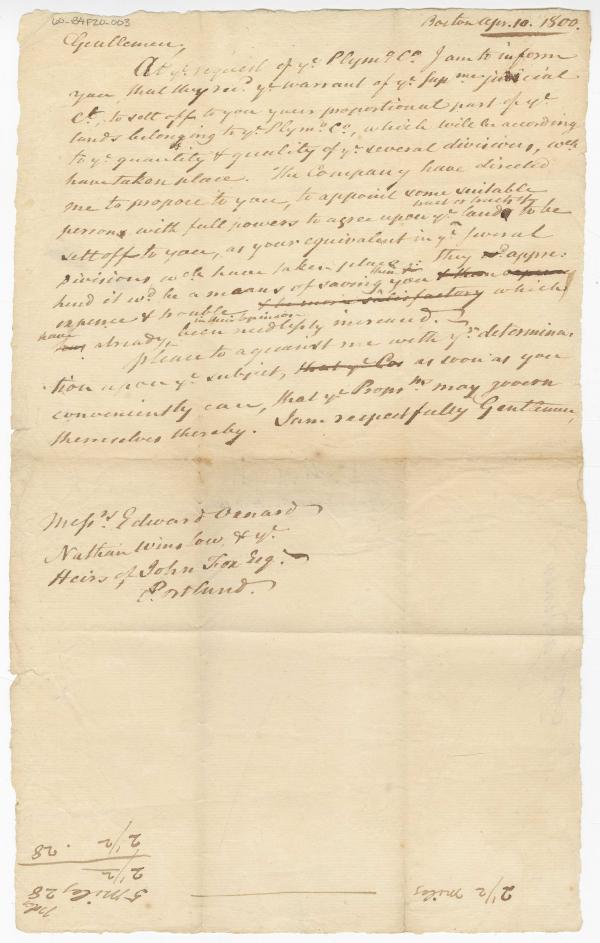 60-84F20-003
Boston Apr. 10. 1800.
Gentlemen,
At ye request of ye Plymo Co. I am to inform
you, that they recd. ye warrant of ye Supme judicial
Ct, to sett off to you your proportional part of ye
lands belonging to ye Plymo Co., which will be according
to ye quantity & quality of ye several divisions, wch
have taken place. The Company have directed
me to propose to you, to appoint some suitable
tract or tracts of
persons with full powers to agree upon ye land to be
sett off to you, as your equivalent in ye several
Divisions wch have taken place: they appre:
hend it wd. be a means of saving you
expence & trouble & be more satisfactory which
have in their opinion
already been needlessly increased.
please to acquaint me with yr determina:
tion upon ye subject, that ye Co as soon as you
conveniently can, that ye Propms may govern
themselves thereby. I am respectfully Gentlemen,
Messrs Edward Oxnard
Nathan Winslow & ye
Heirs of John Fox Esqr.
Portland.
2 1/2 Miles
5 Miles 28
2 1/2
2 1/2 . 28